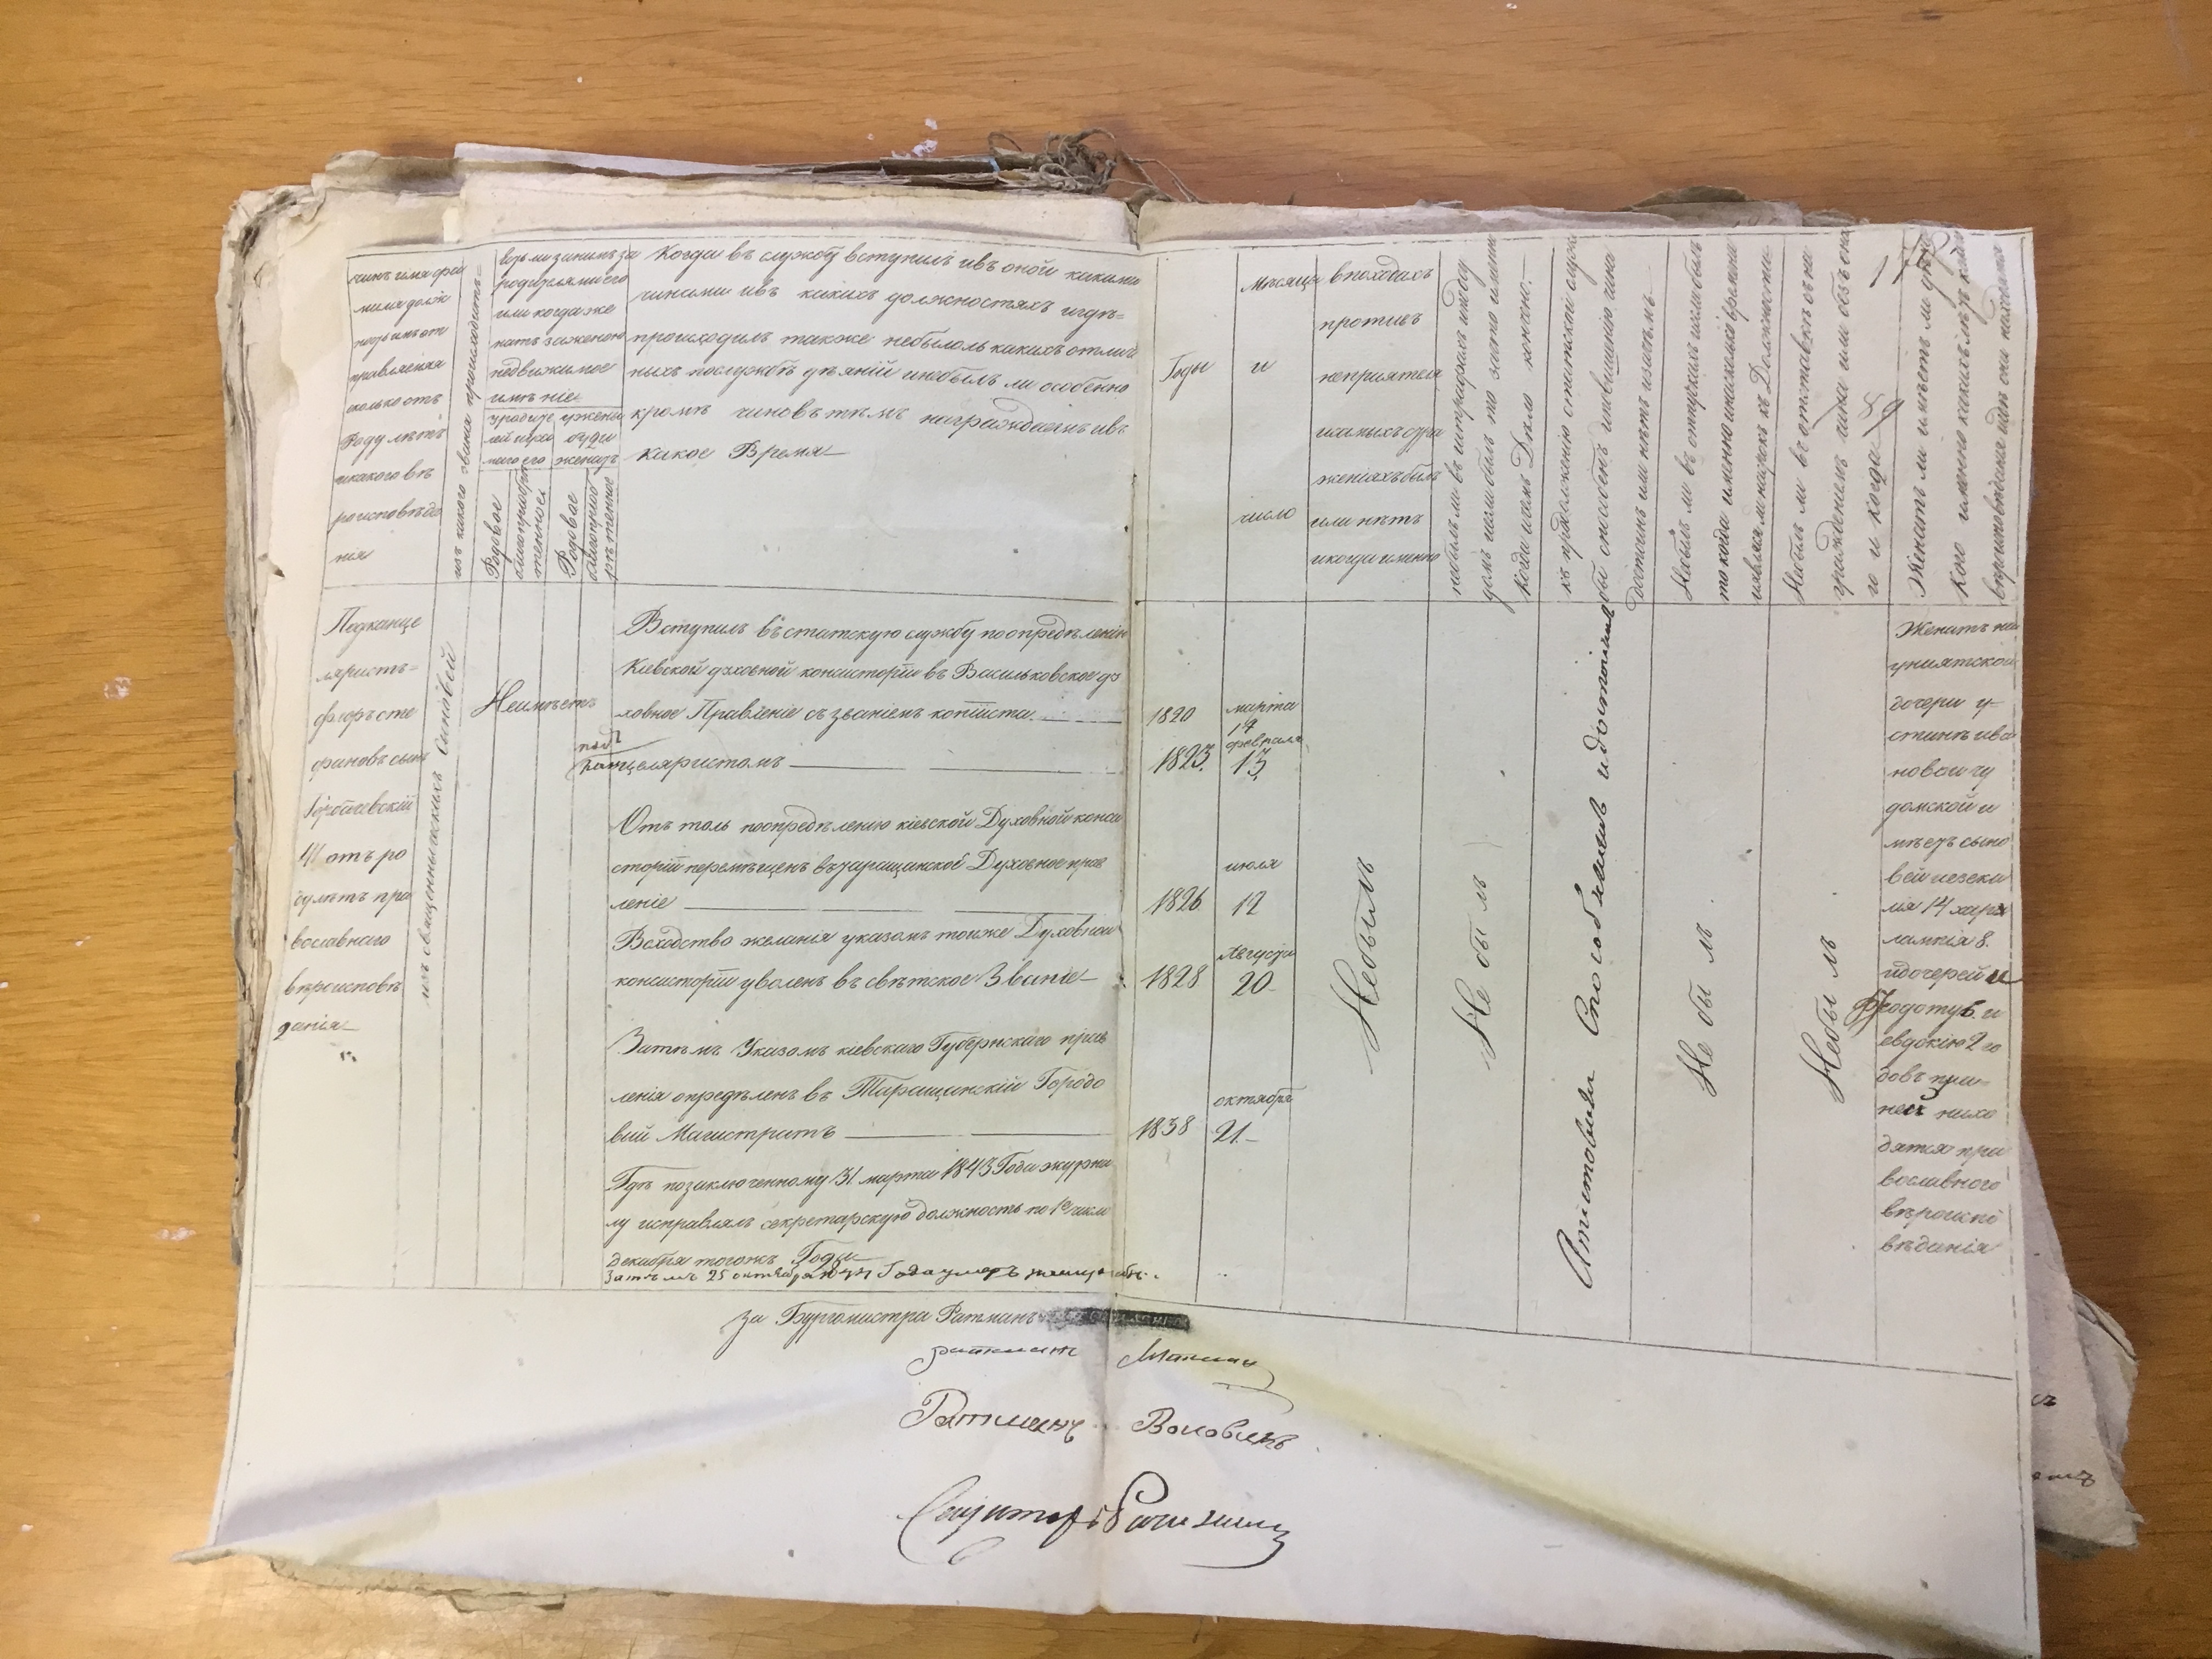 чинъ имя фа
милія долж
правленія
сколко отъ
Роду лѣтъ
икакого вѣ
роисповѣда
нія
изъ какого званія происходитъ
есть ли занимъ за
родителями его
или когда же
натъ заженою
недвижимое
имѣніе
у родите
лей или
у жены
буди
женатъ
Родовое
благопріобрѣ
тенное
Родовое
благопріоб
рѣтенное
Когда въ службу вступилъ ивъ оной какими
чинами ивъ какихъ должностяхъ игдѣ=
происходилъ также небылоль какихъ отлич
ныхъ послужбѣ дѣяній инебылъ ли особенно
кромѣ чиновъ чѣмъ награждаемъ ивъ
какое Время
Годы
Мѣсяцы
и
число
впоходахъ
противъ
непріятеля
исамыхъ сра
женіяхъ былъ
или нѣтъ
икогда именно
небылъ ли въ штрафахъ иподсу
домъ иесли былъ то зачто именно
когда ичемъ Дѣло кончено.
къ продолженію статской служ
бы способенъ иповышенію чина
достоинъ или нѣтъ изачѣмъ
Небылъ ли въ отпускахъ иесли былъ
то когда именно инасколько времени
иявился ли насрокъ къ Должности
Небылъ ли въ отставкѣ съ на
гражденіемъ чина или безъ она
го и когда
Женатъ ли имѣетъ ли дѣте
кого именно какихъ лѣтъ како
вѣроисповѣданія игдѣ они находятся
59
Подканце
ляристъ=
флоръ сте
фановъ сынъ
41 отъ ро
ду лѣтъ пра
вославнаго
вѣроисповѣ
данія
изъ священническихъ сыновей
Неимѣетъ
Вступилъ въ статскую службу поопредѣленію
Кіевской духовной консисторіи въ Васильковское ду
ховное Правленіе съ званіемъ копіиста.
1820
марта
подъ
канцеляристомъ
1823.
февраля
13
Отъ толь поопредѣленію кіевской Духовной конси
сторіи перемѣщенъ въ таращанское Духовное прав
леніе
1826
июля
12
Всходство желанія указомъ тоиже Духовной
консисторіи уволенъ въ свѣтское Званіе
1828
Августа
20
Затѣмъ Указомъ кіевскаго Губернскаго прав
ленія опредѣленъ въ Таращанскій Городо
вый Магистратъ
1838
октября
21
Гдѣ позаключенному 31 марта 1843 Года журна
лу исправлялъ секретарскую должность по 1е число
декабря тогожъ Года
Затѣмъ 25 октября 1844 Года умеръ
Небылъ
Не былъ
Аттестованъ Способнымъ идостойнымъ
Не былъ
Небылъ
Женатъ на
униятской
дочери у
стинѣ ива
новой чу
домской и
мѣетъ сыно
вей иезеки
ля 14 хара
лампія 8.
идочерей
Феодоту 6. и
евдокію 2 го
довъ при
ней нахо
дятся пра
вославного
вѣроиспо
вѣданія
За Бургомистра Ратманъ
Ратманъ
Ратманъ
Секретарь